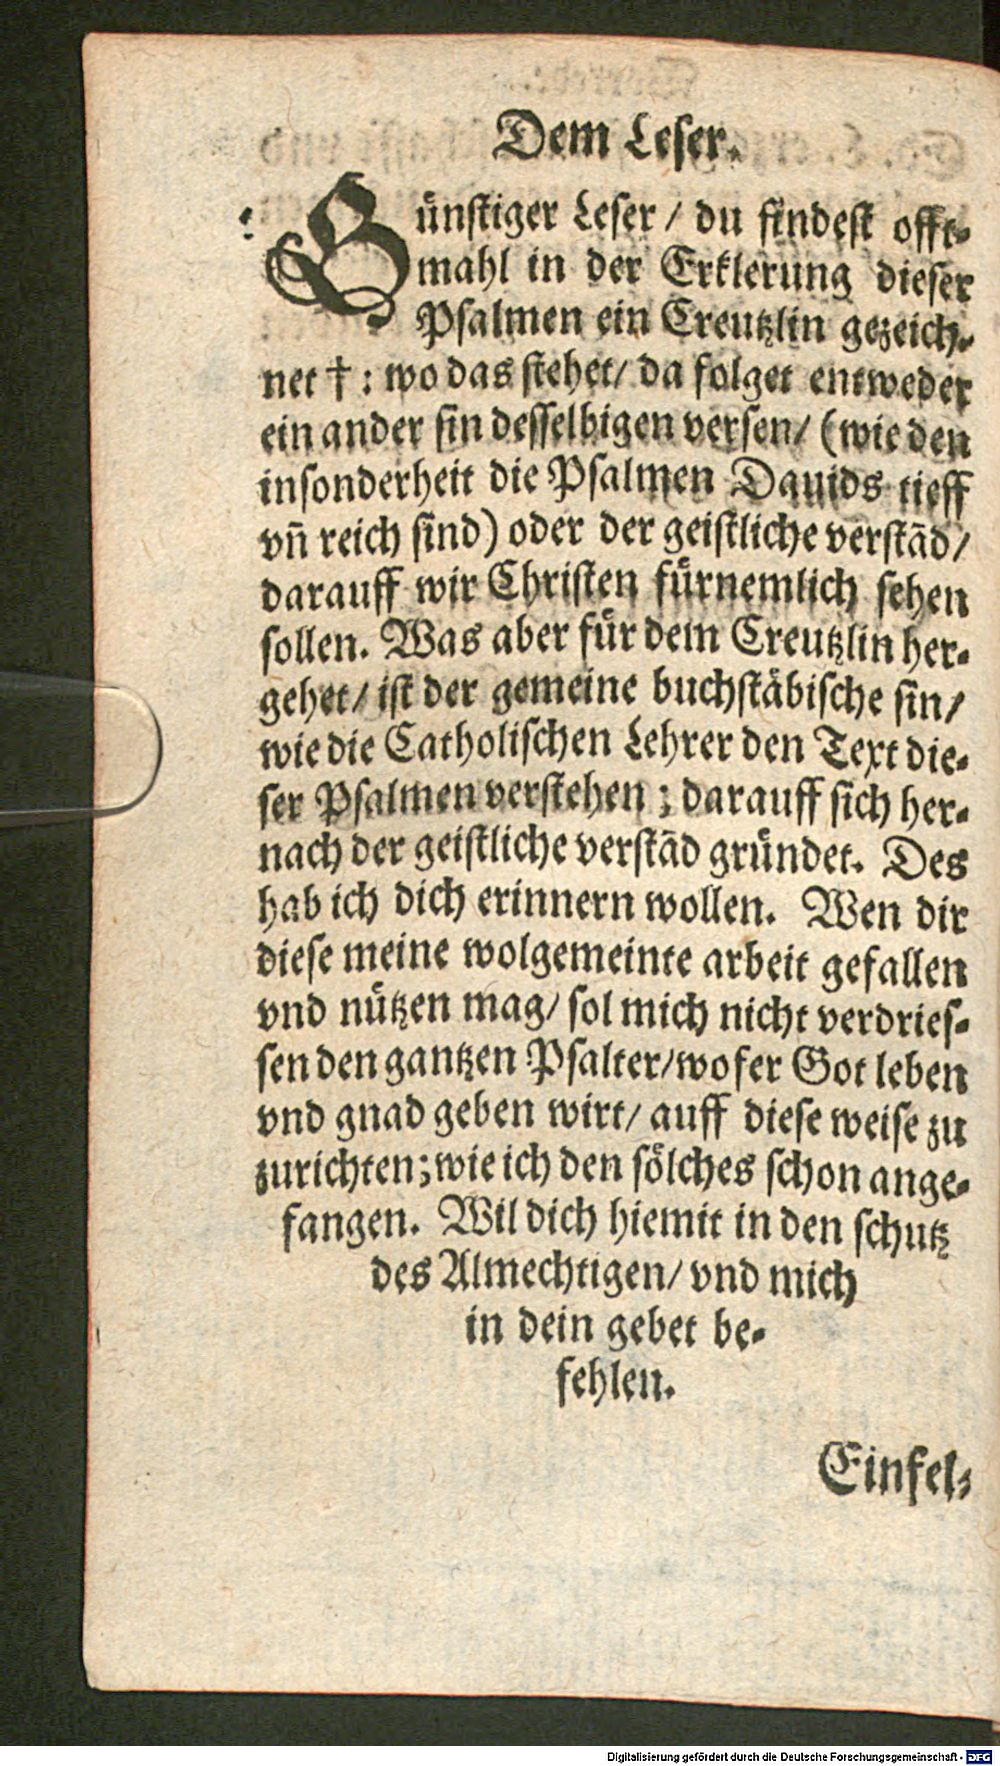 Dem Leser.
Günstiger Leser / du findest offt-
mahl in der Erklerung dieser
Psalmen ein Creutzlin gezeich-
net † : wo das stehet/ da folget entweder
ein ander sin desselbigen versen/ (wie den
insonderheit die Psalmen Dauids tieff
vn̄ reich sind) oder der geistliche verstād/
darauff wir Christen fürnemlich sehen
sollen. Was aber für dem Creutzlin her-
gehet/ ist der gemeine buchstäbische sin/
wie die Catholischen Lehrer den Text die-
ser Psalmen verstehen ; darauff sich her-
nach der geistliche verstād gründet. Des
hab ich dich erinnern wollen. Wen dir
diese meine wolgemeinte arbeit gefallen
vnd nützen mag/ sol mich nicht verdries-
sen den gantzen Psalter/wofer Got leben
vnd gnad geben wirt/ auff diese weise zu
zurichten; wie ich den sölches schon ange-
fangen. Wil dich hiemit in den schutz
des Almechtigen/ vnd mich
in dein gebet be-
fehlen.
Einfel-
Digitalisierung gefördert durch die Deutsche Forschungsgemeinschaft - DFG